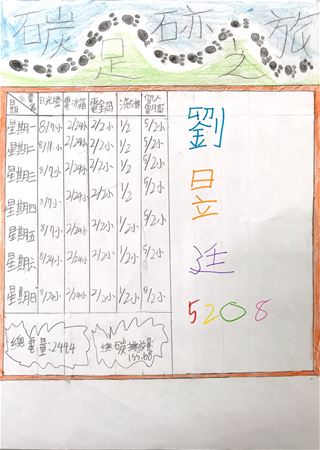 碳足跡之旅
星期 電器 日光燈 電冰箱 電全鍋 洗衣機 個人電腦
星期一 8/7小 2/24小 2/2小 1/2 5/2小
星期二 8/11小 2/24小 2/2小 1/2 5/2小
星期三 8/7小 2/24小 2/2小 1/2 5/2小
星期四 8/7小 2/24小 2/2小 1/2 5/2小
星期五 8/7小 2/24小 2/2小 1/2小 5/2小
星期六 8/24小 2/24小 2/2小 1/2小 5/2小
星期日 8/24小 2/24小 2/2小 1/2小 5/2小
總電量:244.4
總碳排放量
155.68
劉
昱
廷
5208